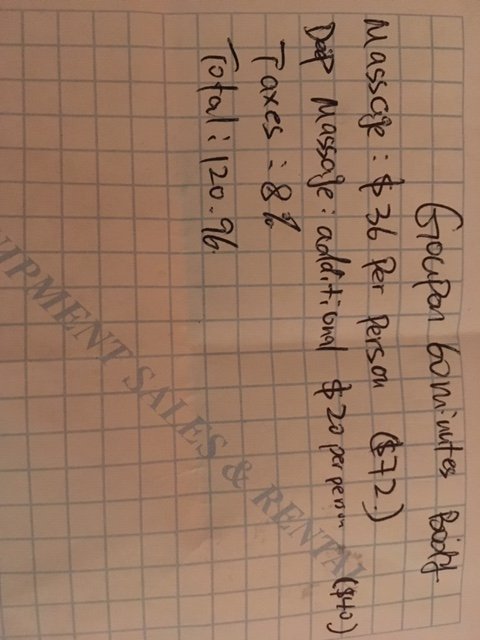 Goupon 60 minutes Body
Massage: $36 Per Person ($72.)
Deep Massage: additional $20 per person ($40)
Taxes: 8%
Total: 120.96.
UIPMENT SALES & RENTAL